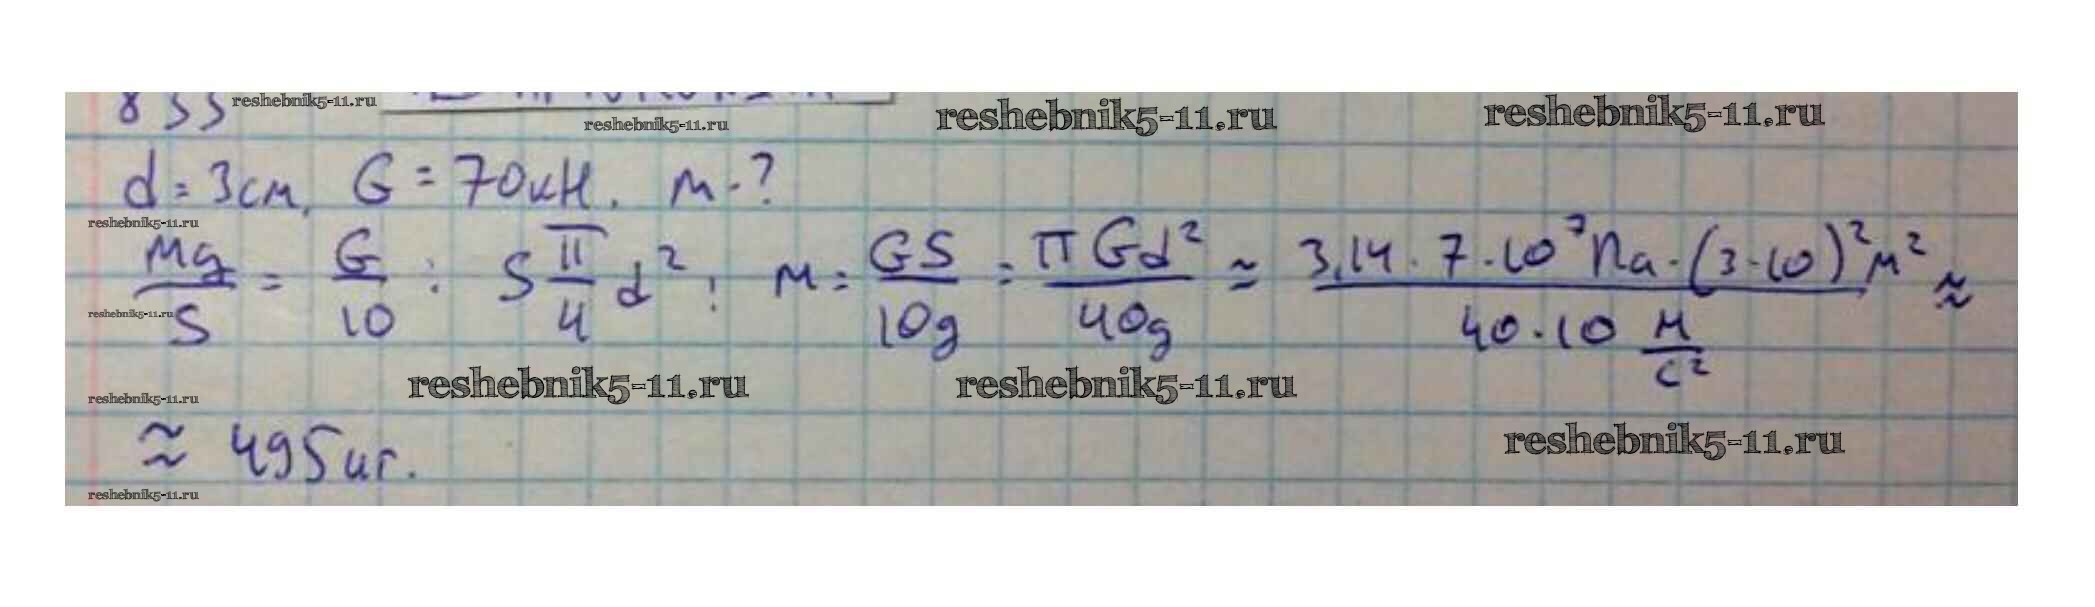 833 reshebnik5-11.ru
reshebnik5-11.ru reshebnik5-11.ru reshebnik5-11.ru
d = 3 см, G = 70 кН. м - ?
reshebnik5-11.ru
Mg/S = G/10 ; S π/4 d² ; м = GS/10g = πGd²/40g ≈ 3,14 · 7 · 10⁷ Па · (3 · 10)² м² / 40 · 10 м/с² ≈
reshebnik5-11.ru
reshebnik5-11.ru reshebnik5-11.ru reshebnik5-11.ru
≈ 495 кг. reshebnik5-11.ru
reshebnik5-11.ru